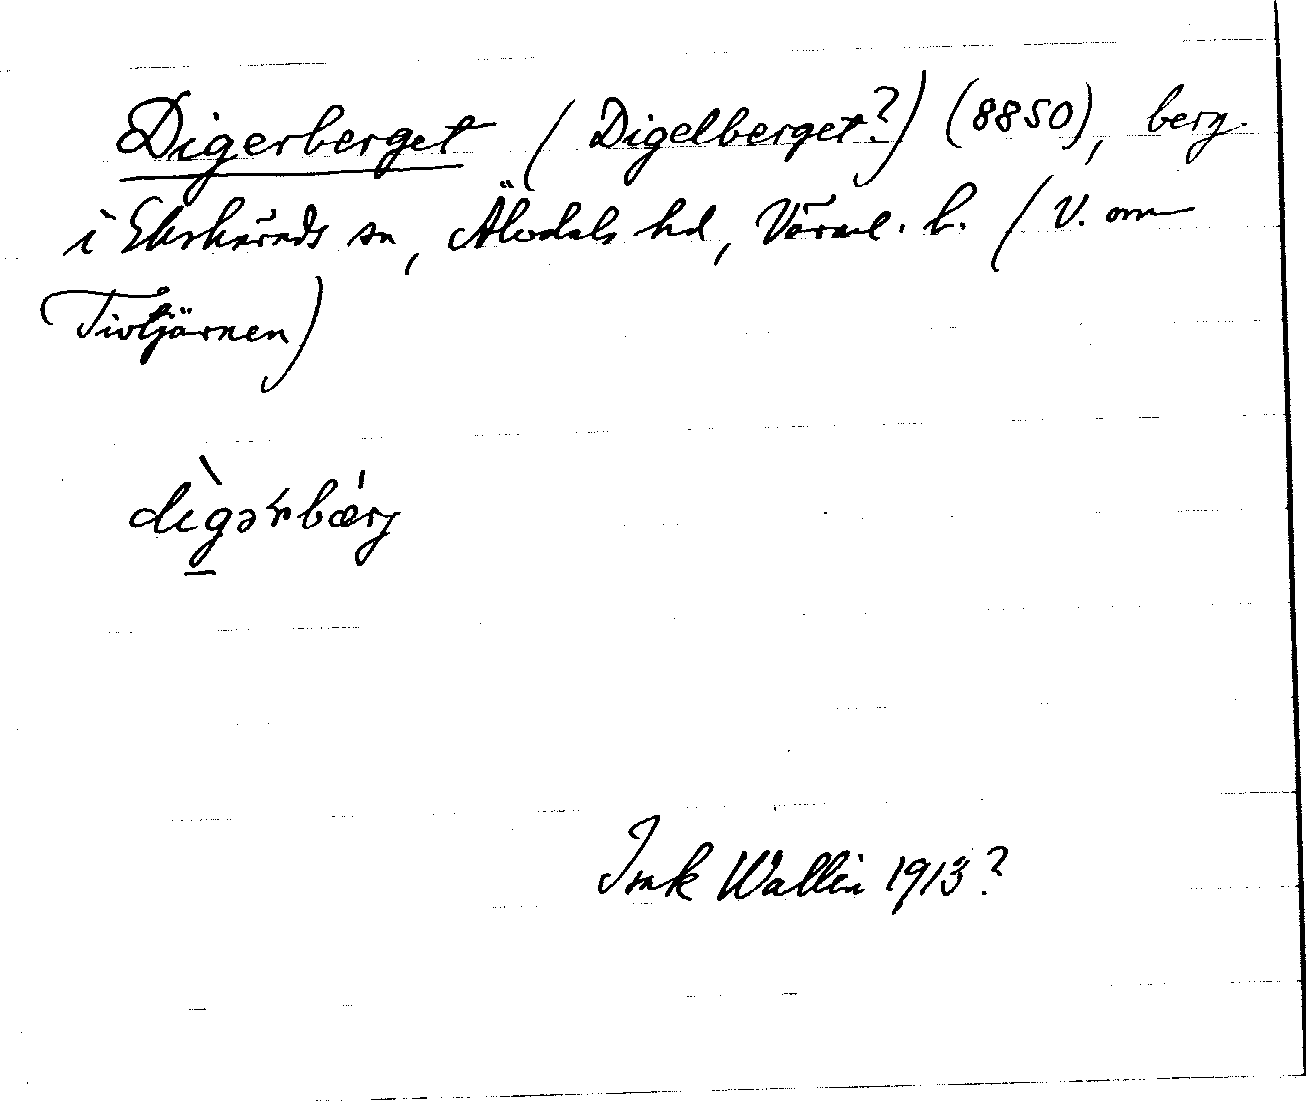 Digerberget (Digelberget?) (8850), berg
i Ekshärads sn, Älvdals hd, Värml. l. (V. om
Tivtjärnen)
digərbærj
Wallin 1913?